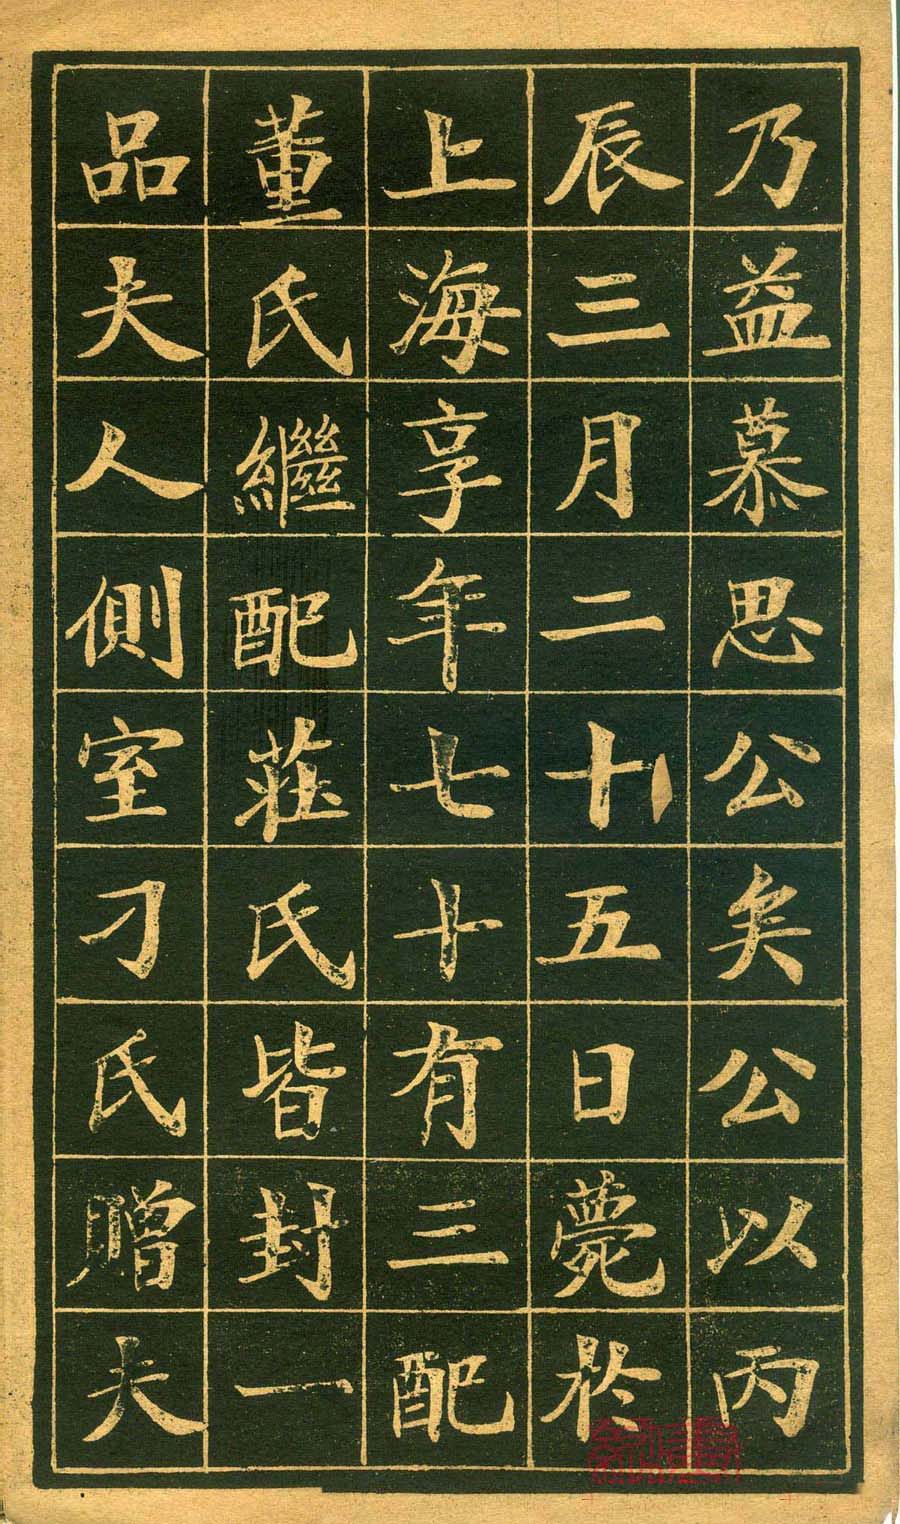 乃益慕思公矣公以丙
辰三月二十五日薨於
上海享年七十有三配
董氏繼配莊氏皆封一
品夫人側室刁氏贈夫